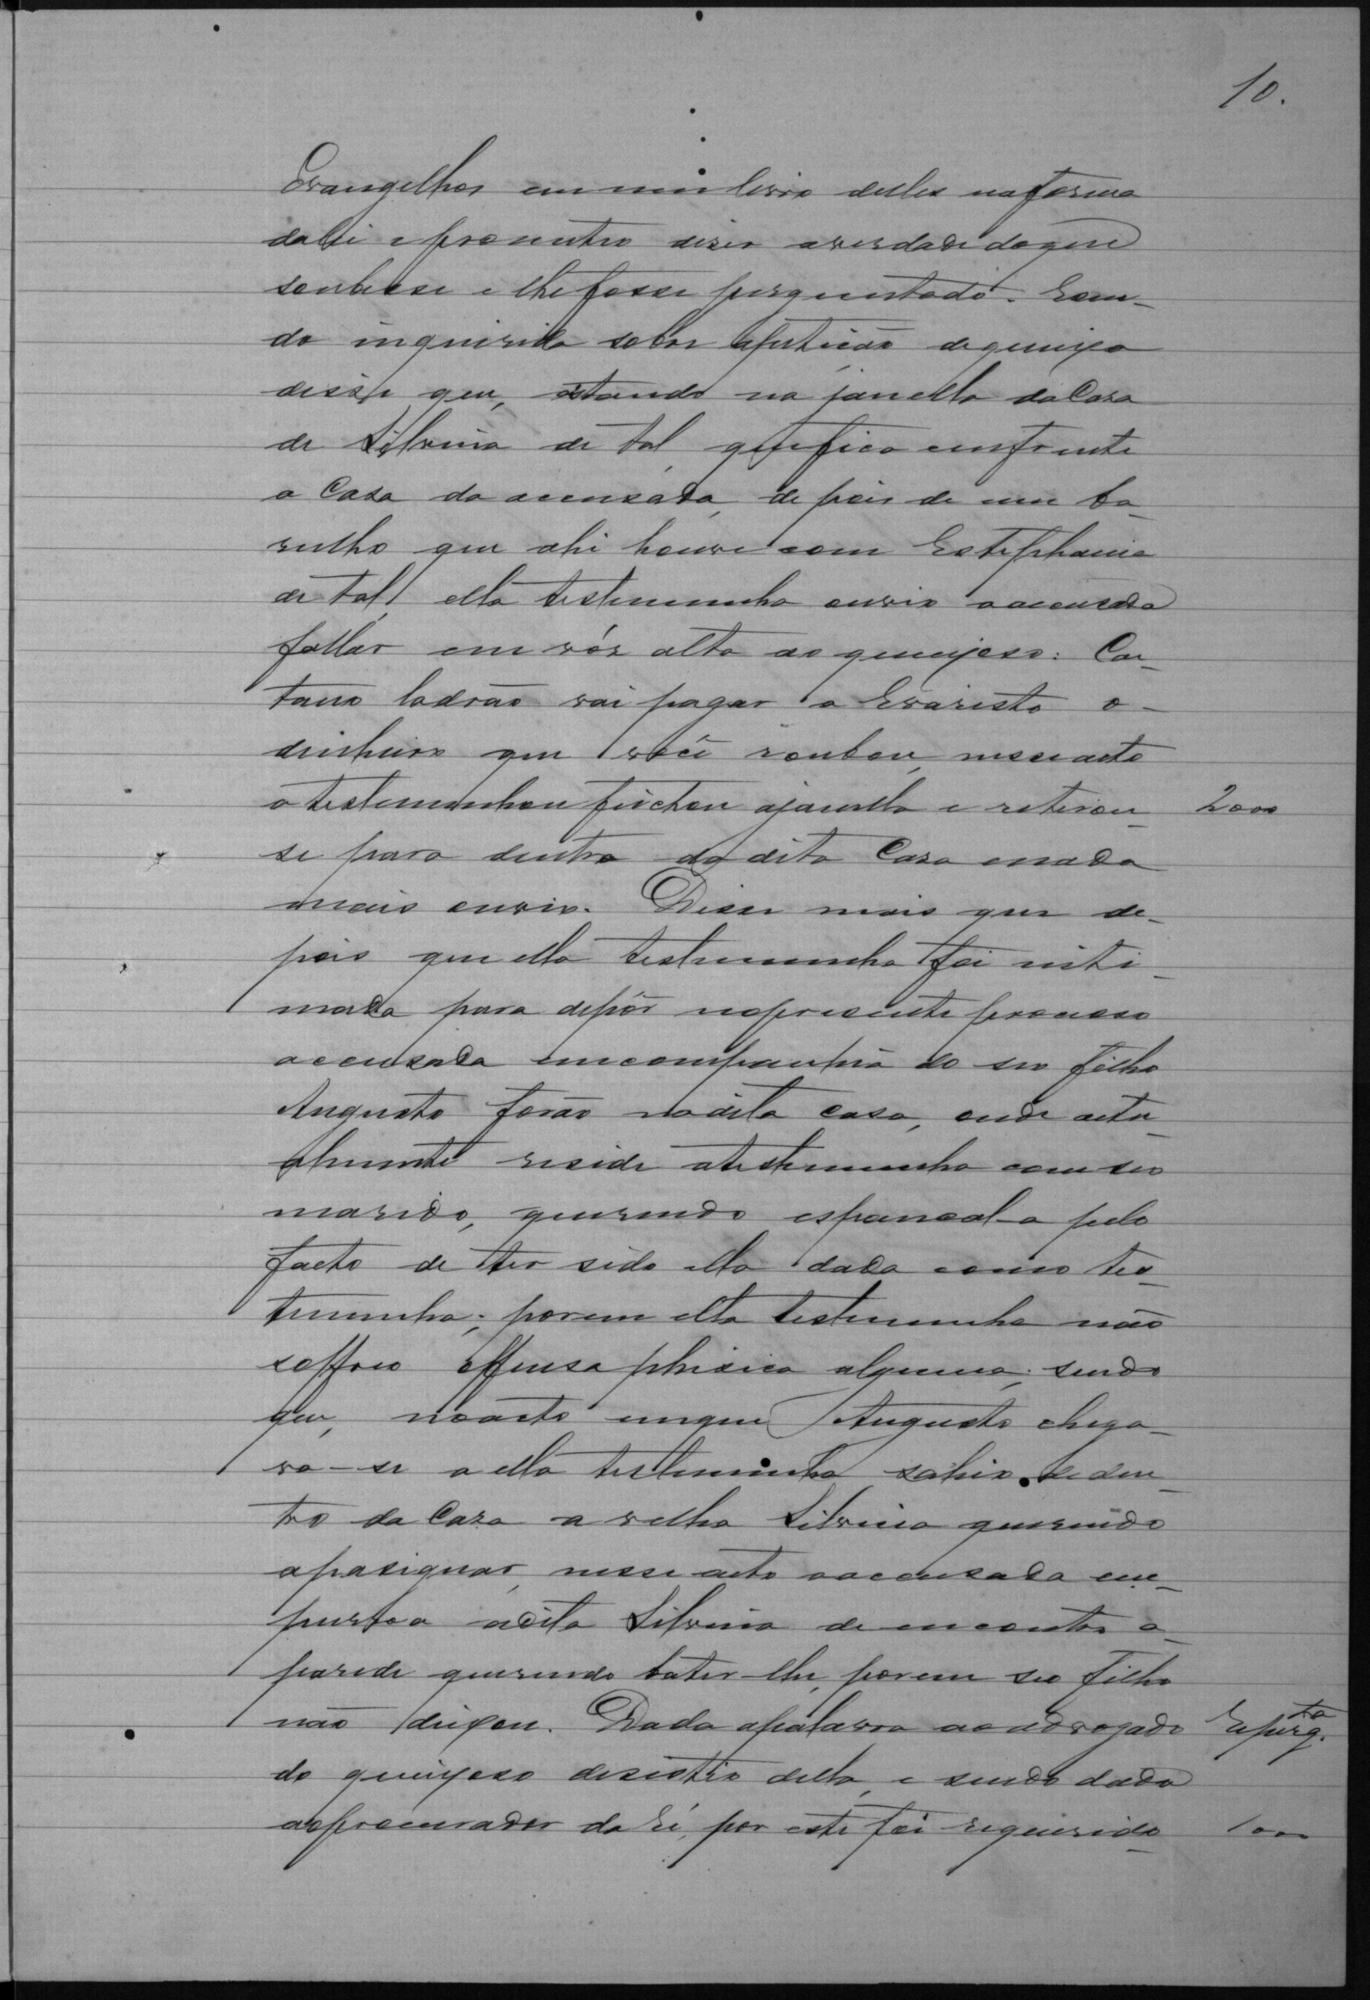 10.
Evangelhos em um livro delles na forma
da lei e prometteo diser a verdade do que
soubesse e lhe fosse perguntado. E sen-
do inquirida sobre a petição de queixa
disse que, estando na janella da Casa
de Silvina de tal que fica em frente
a Casa da accusada, depois de um ba-
rulho que ahi houve com Estephania
de tal, ella testemunha ouvio a accusada
fallar em vós alta ao queixoso: Cae-
tano ladrão vai pagar a Evaristo o
dinheiro que você roubou, nesse acto
a testemunhou feichou a janella e retirou- 2000
se para dentro da dita Casa e nada
mais ouvio. Disse mais que de-
pois que ella testemunha foi inti-
mada para depôr no presente processo
a accusada em companhia do seo filho
Augusto forão na dita casa, onde actu-
almente reside a testemunha com seo
marido, querendo espancal-a pelo
facto de ter sido ella dada como tes-
temunha; porem ella testemunha não
soffreo offensa phisica alguma; sendo
que, no acto em que Augusto chega-
va-se a ella testemunha sahio de den-
tro da Casa a velha Silvina querendo
apasiguar, nesse acto a accusada em-
purrou a dita Silvina de encontro a
parede querendo bater-lhe, porem seo filho
não deixou. Dada a palavra ao advogado Reperg.ta
do queixoso desistio della, e sendo dada
ao procurador da Ré, por este foi requerido 1000